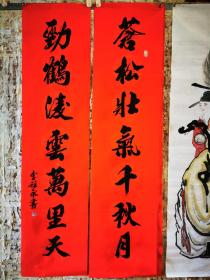 蒼松壯氣千秋月
勁鶴凌雲萬里天